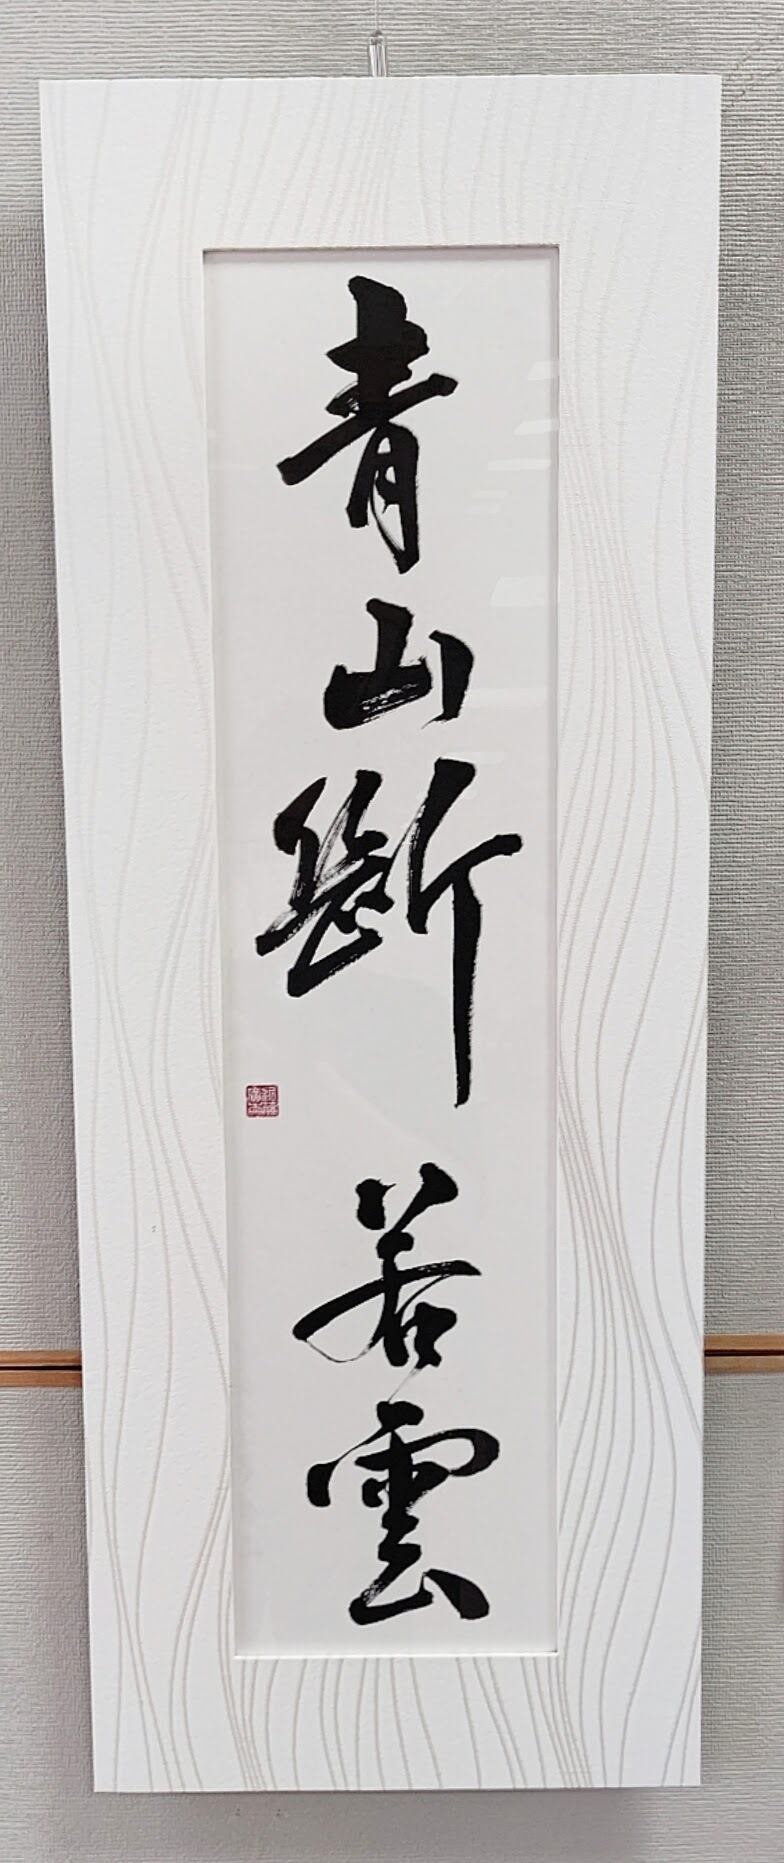 青山斷若雲